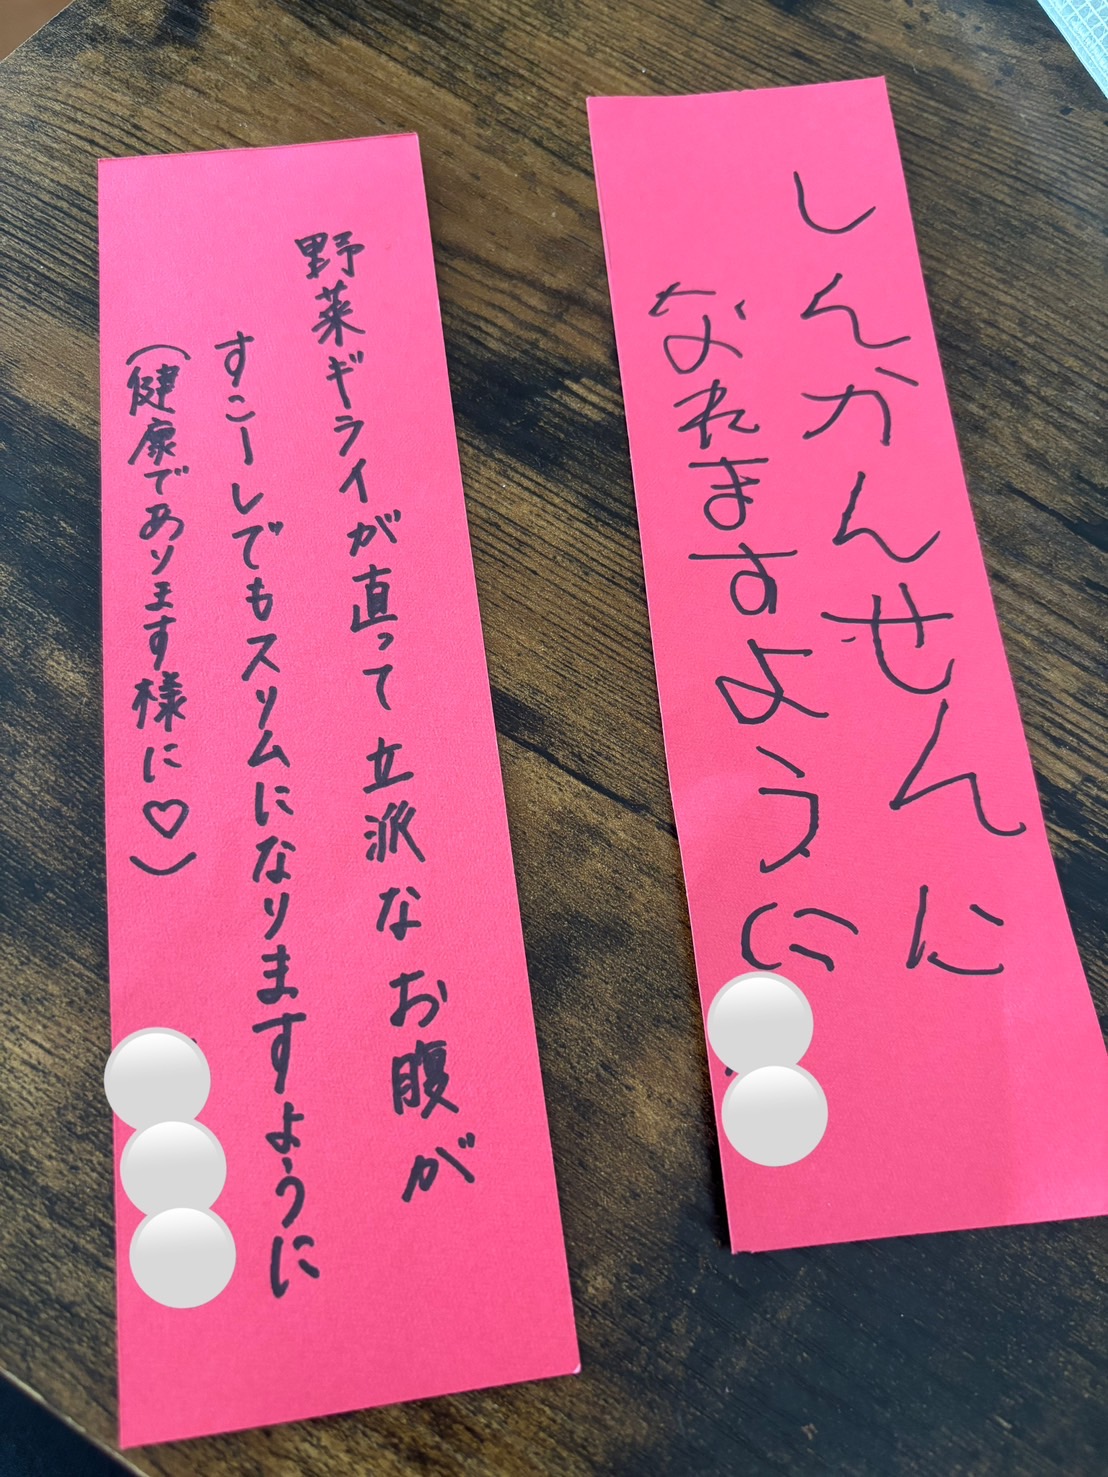 しんかんせんに
なれますように
野菜ギライが直って立派なお腹が
すこーしでもスリムになりますように
(健康であります様に♡)